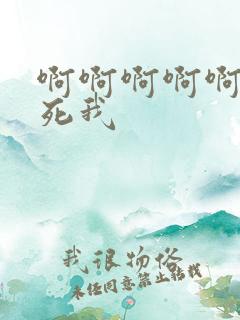 啊啊啊啊啊
死我
我很物俗
未经同意禁止转载